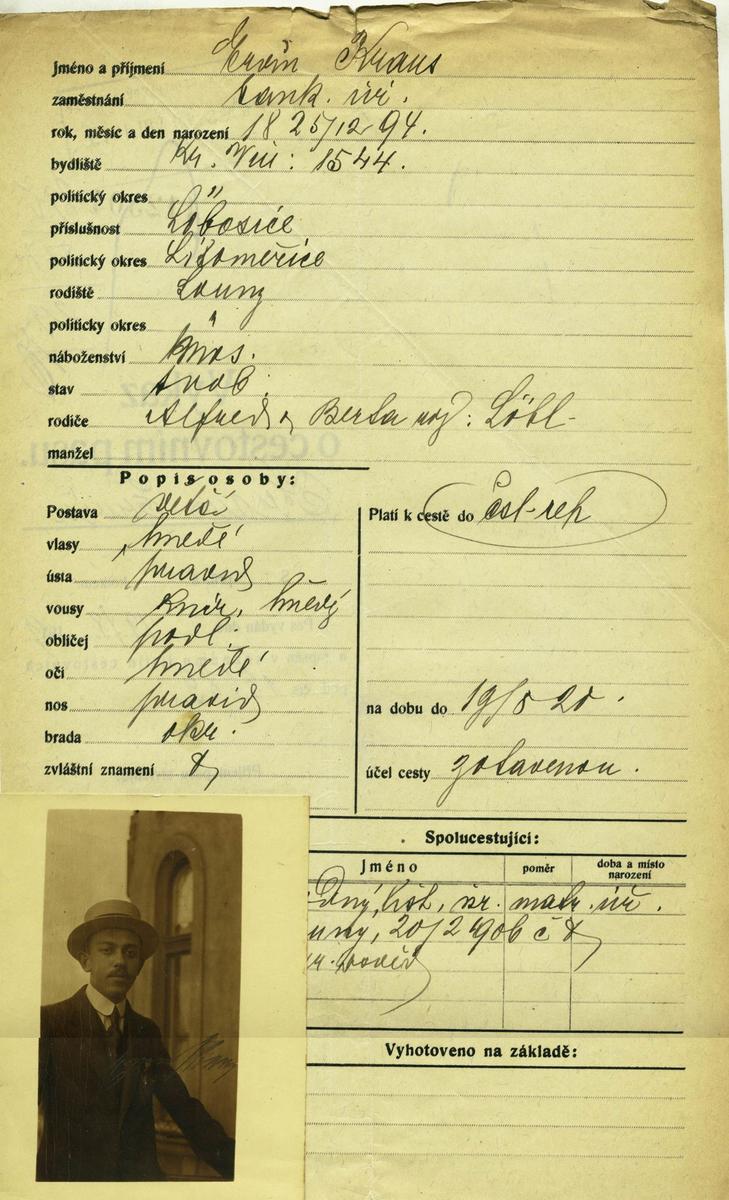 Jméno a příjmení Ervín Kraus
zaměstnání bank. úř.
rok, měsíc a den narození 18 25/12 94.
bydliště Kr. Vin: 1544.
politický okres "
příslušnost Lobosice
politický okres Litoměřice
rodiště Louny
politicky okres "
náboženství mos.
stav svob.
rodiče Alfred a Berta roz. Löbl
manžel
Popis osoby:
Postava větší
vlasy hnědé
ústa pravid
vousy knír, hnědý
obličej podl.
oči hnědé
nos pravid
brada okr.
zvláštní znamení
Platí k cestě do Čsl-rep
na dobu do 19/8 20.
účel cesty zotavenou.
Spolucestující:
Jméno poměr doba a místo narození
list, matr. úř.
uny, 20/2 906 č
Vyhotoveno na základě: